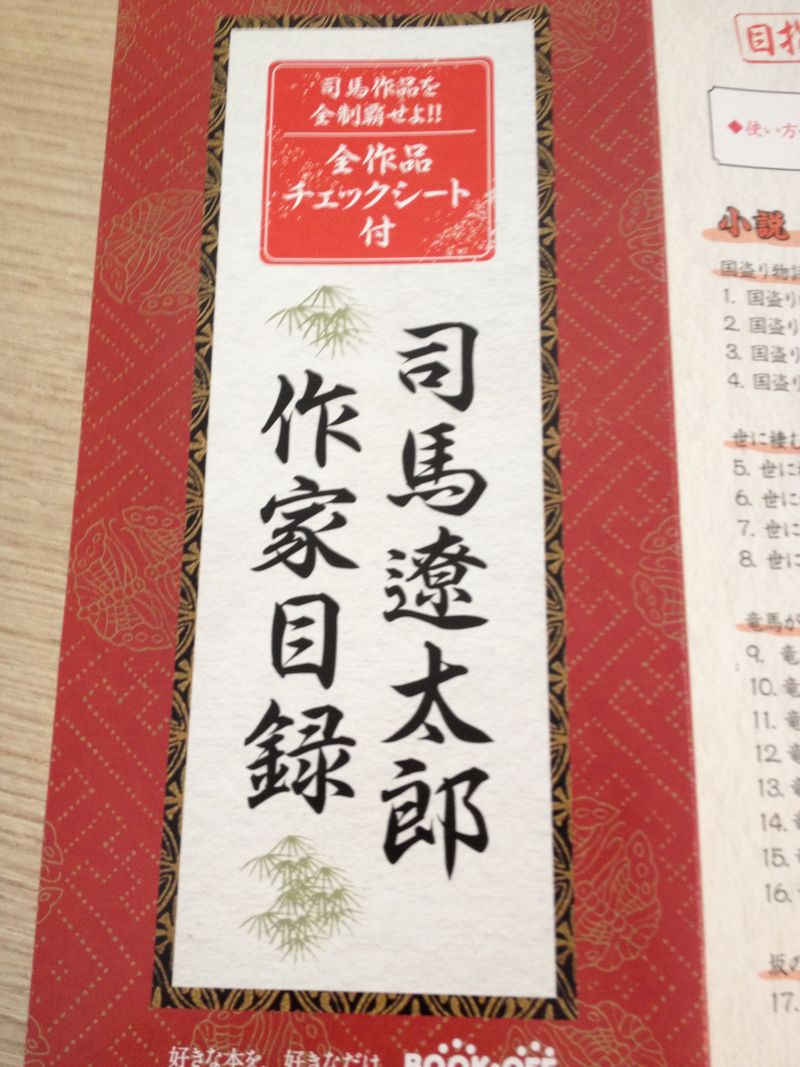 司馬作品を
全制覇せよ!!
全作品
チェックシート
付
司馬遼太郎
作家目録
好きな本を、好きなだけ。 BOOK・OFF
目指
◆使い方
小説
国盗り物語
1. 国盗り
2. 国盗り
3. 国盗り
4. 国盗り
世に棲む
5. 世に
6. 世に
7. 世に
8. 世に
竜馬が
9. 竜
10. 竜
11. 竜
12. 竜
13. 竜
14. 竜
15. 竜
16. 竜
坂の
17.